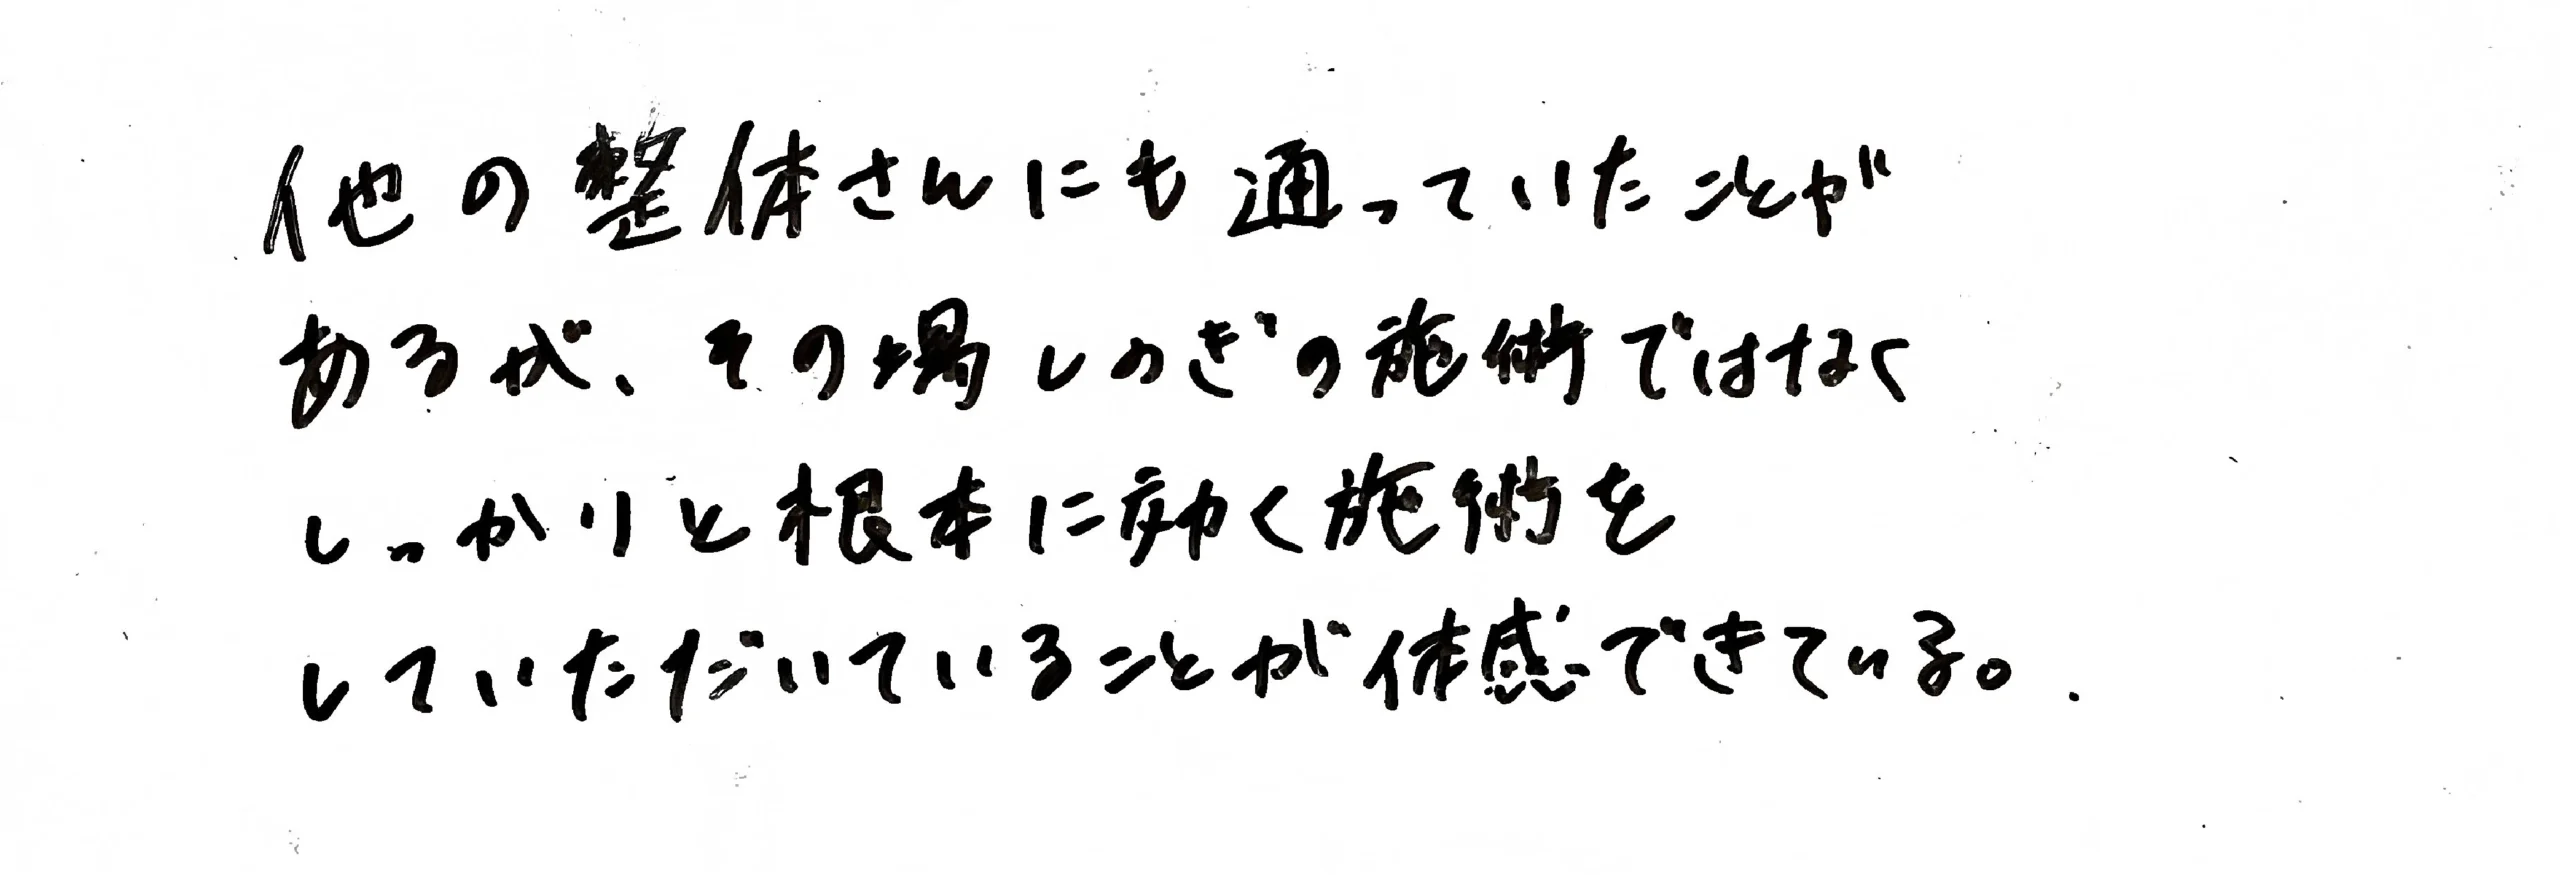 他の整体さんにも通っていたことが
あるが、その場しのぎの施術ではなく
しっかりと根本に効く施術を
していただいていることが体感できている。